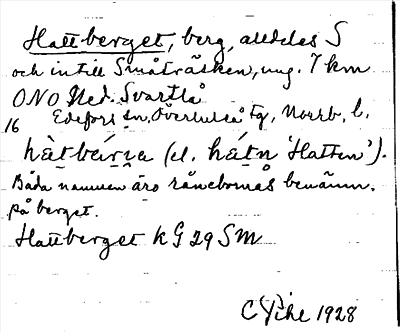 Hattberget, berg, alldeles S
och intill Småträsken, ung. 7 km
ONO Ned. Svartlå
16 Edefors sn, Överluleå tg, Norrb. l.
hàt̀bár̥n̥a (el. hát̥n 'Hatten').
Båda namnen äro rånebornas benämn.
på berget.
Hattberget k G 29 SM
C Pihl 1928